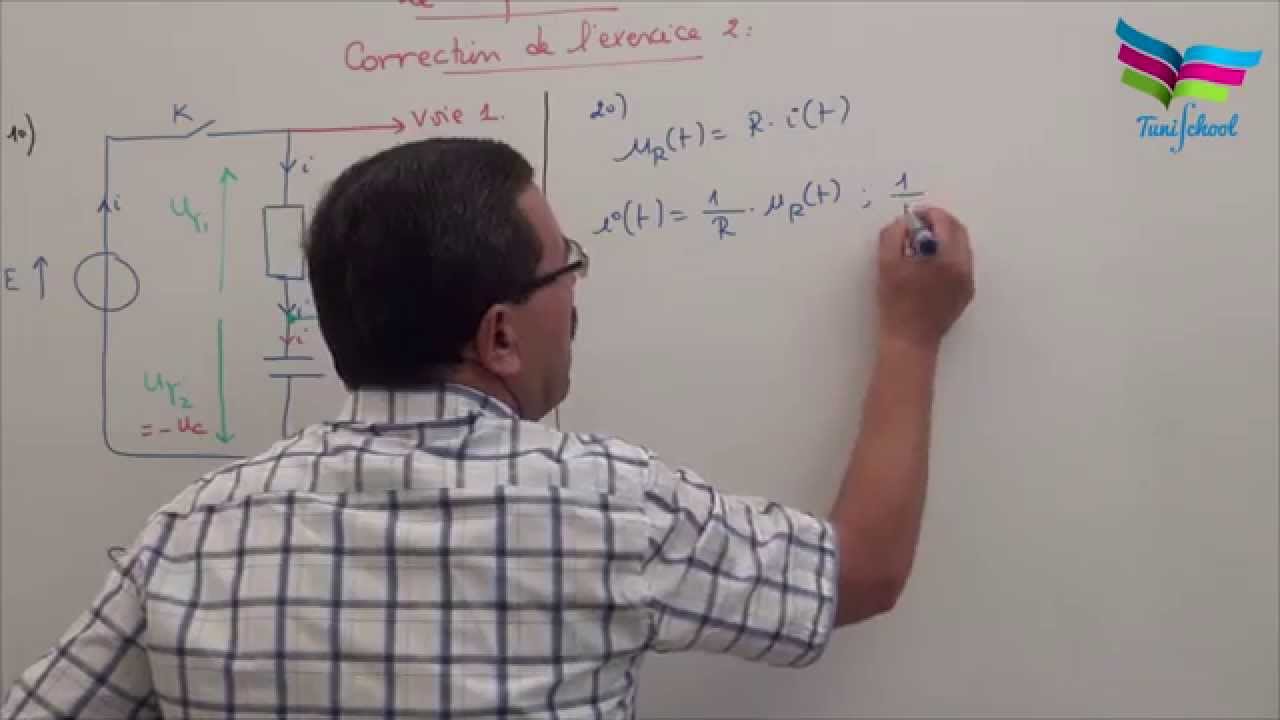 Correction de l'exercice 2:
1°)
K
Voie 1.
i
i
E
uY1
i
i
uY2
= - uc
2°)
uR(t) = R · i(t)
i(t) = 1/R · uR(t) ; 1
TuniSchool